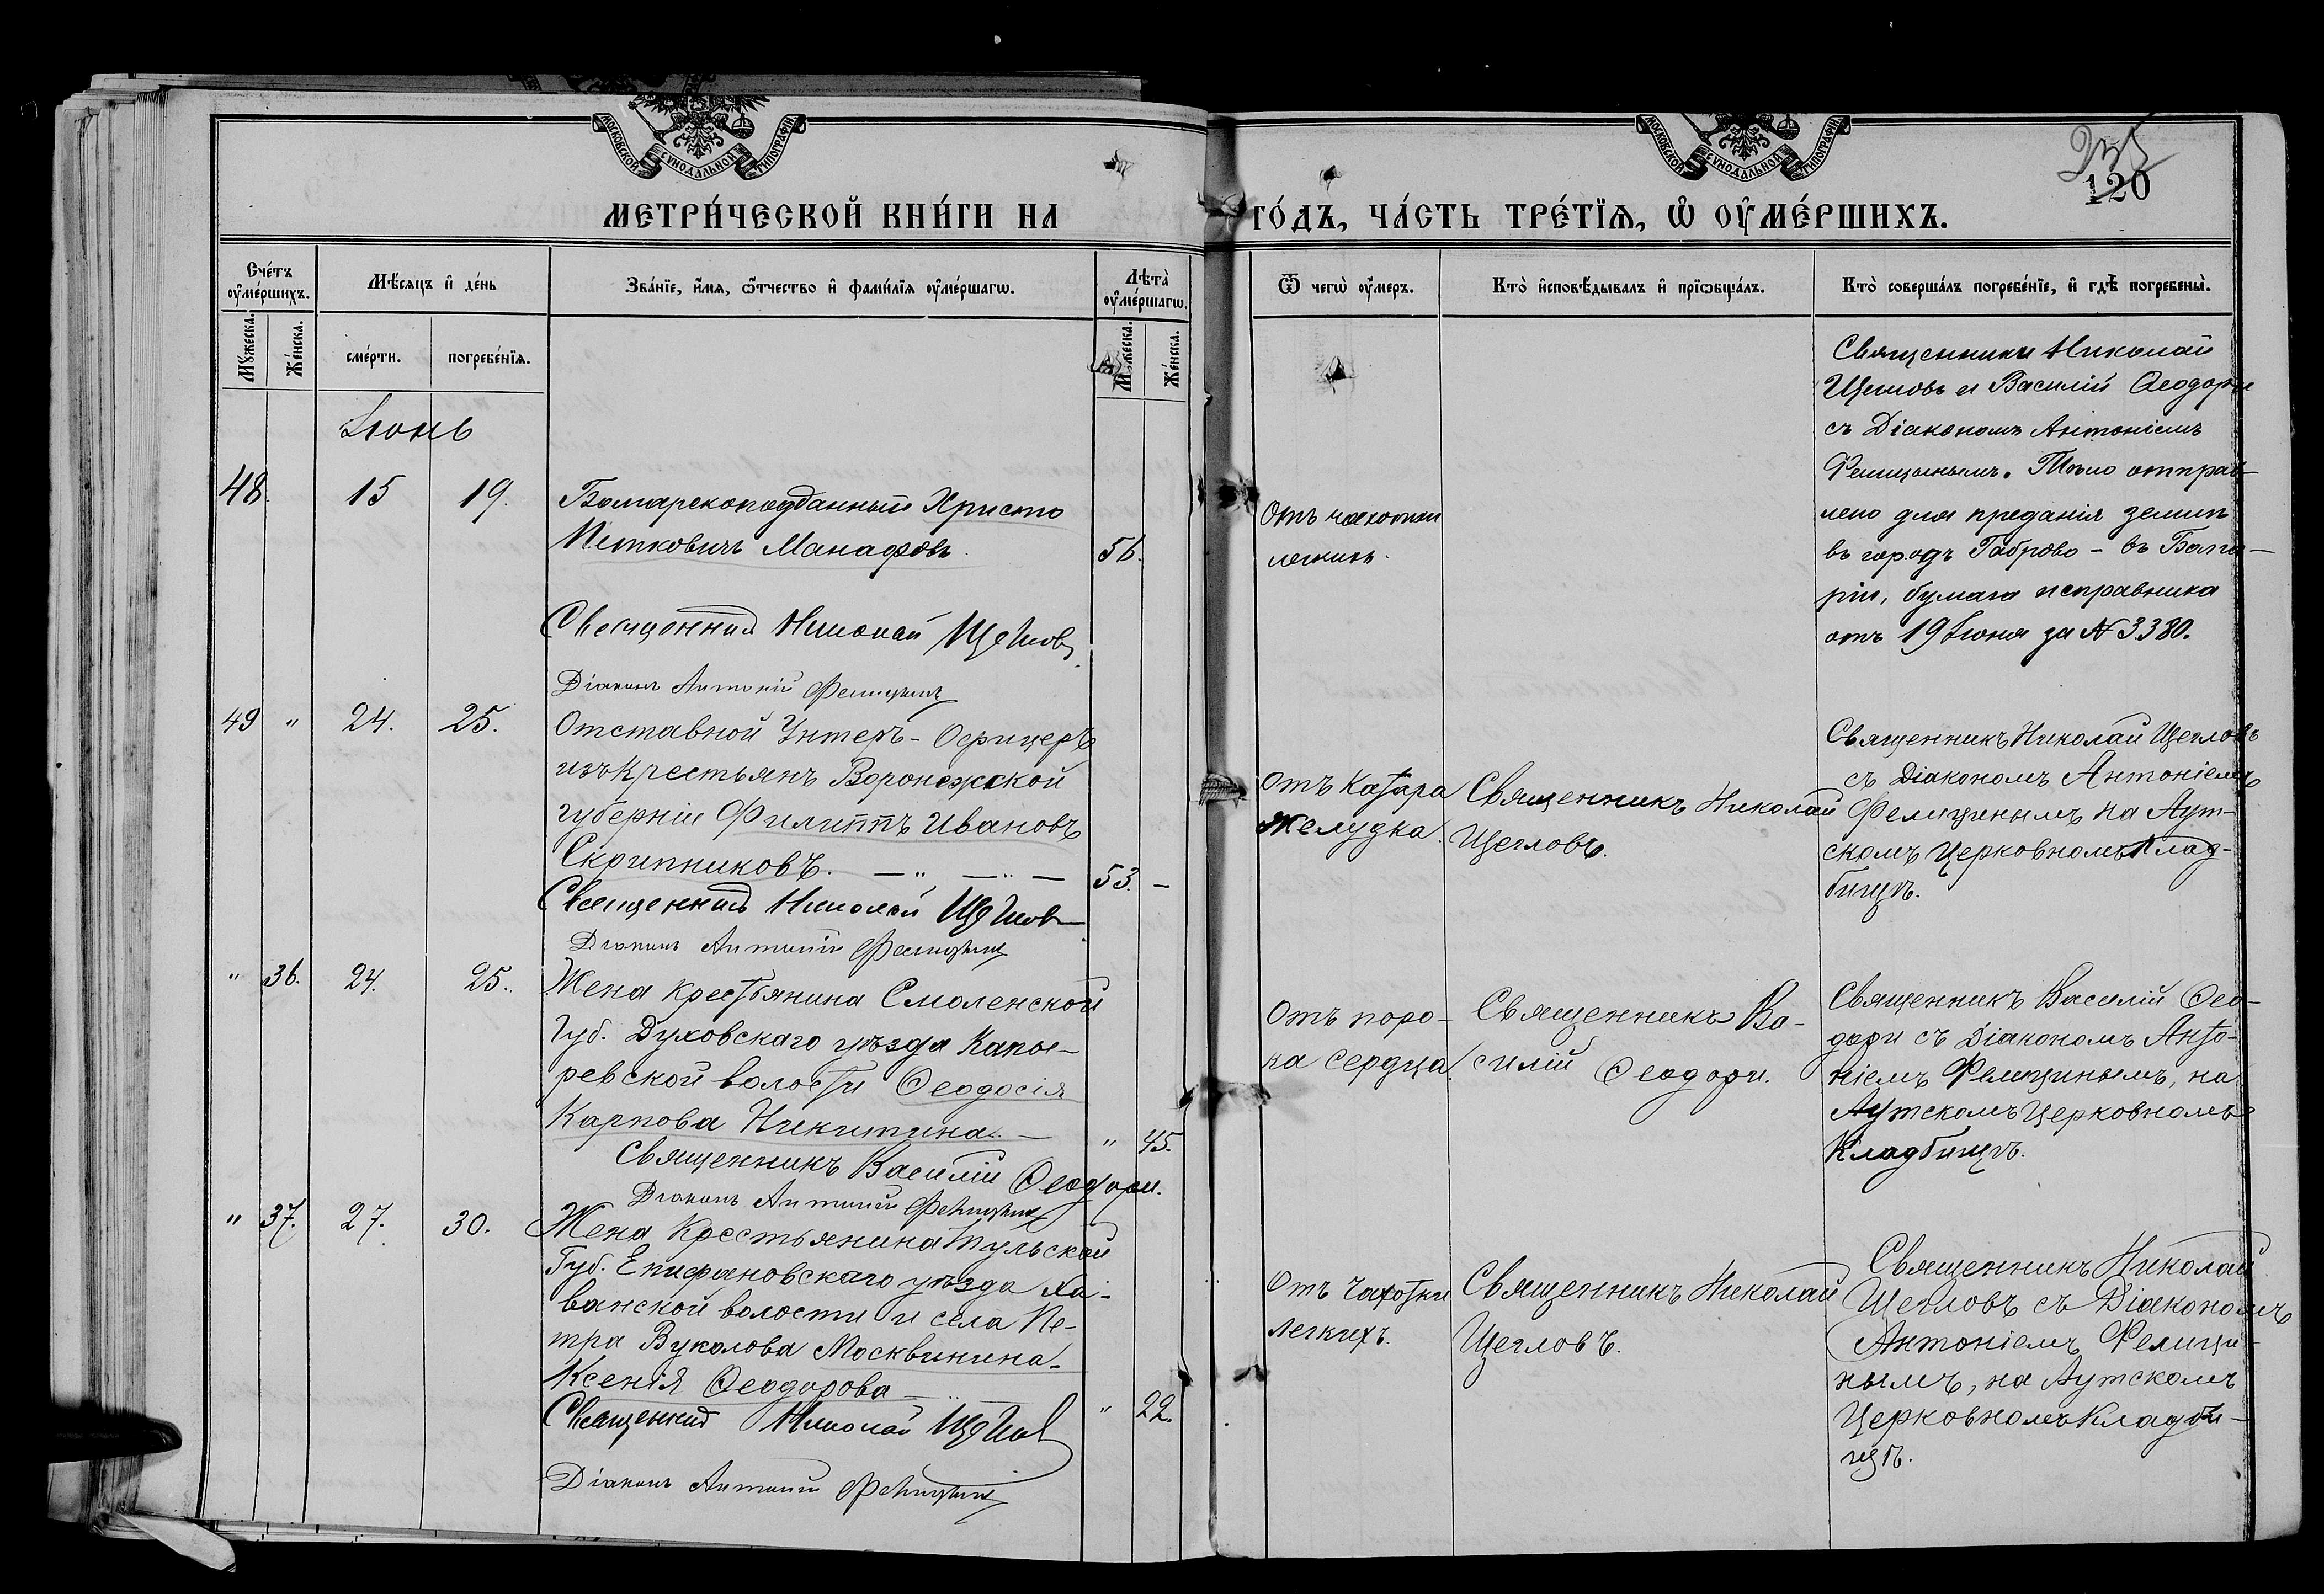 МОСКОВСКОЙ СУНОДАЛЬНОЙ ТИПОГРАФІИ
МОСКОВСКОЙ СУНОДАЛЬНОЙ ТИПОГРАФІИ
120
МЕТРИ́ЧЕСКОЙ КНИ́ГИ НА ГО́ДЪ, ЧА́СТЬ ТРЕ́ТЇѦ, Ѡ҆ ОУ҆МЕ́РШИХЪ.
Сче́тъ оу҆ме́ршихъ.
Мꙋ́жеска.
Же́нска.
Мѣ́сѧцъ и҆ де́нь
сме́рти.
погребе́нїѧ.
Зва́нїе, и҆́мѧ, ѻ҆́тчество и҆ фами́лїѧ оу҆ме́ршагѡ.
Лѣта̀ оу҆ме́ршагѡ.
Мꙋ́жеска.
Же́нска.
Ѿ чегѡ̀ оу҆́меръ.
Кто̀ и҆сповѣ́дывалъ и҆ прїѡбща́лъ.
Кто̀ соверша́лъ погребе́нїе, и҆ гдѣ̀ погребены̀.
Іюнь
48. 15 19.
Болгарскоподданный Христо
Петковичъ Манафовъ. 56.
Священникъ Николай Щегловъ
Діаконъ Антоній Фелицынъ
Отъ чахотки
легкихъ.
Священники Николай
Щегловъ и Василій Ѳеодори
съ Діакономъ Антоніемъ
Фелицынымъ. Тѣло отправ-
лено для преданія землѣ
въ городъ Габрово - въ Болга-
ріи, бумага исправника
отъ 19 Іюня за № 3380.
49 " 24. 25.
Отставной Унтеръ-Офицеръ
изъ крестьянъ Воронежской
губерніи Филиппъ Ивановъ
Скрипниковъ. — " — " — 53. —
Священникъ Николай Щегловъ
Діаконъ Антоній Фелицынъ
Отъ Катара
желудка.
Священникъ Николай
Щегловъ.
Священникъ Николай Щегловъ
съ Діакономъ Антоніемъ
Фелицинымъ на Аут-
скомъ Церковномъ клад-
бищѣ.
" 36. 24. 25.
Жена крестьянина Смоленской
Губ. Духовскаго уѣзда
ревской волости Ѳеодосія
Карпова Никитина. — " 45.
Священникъ Василій Ѳеодори.
Діаконъ Антоній Фелицынъ
Отъ поро-
ка сердца.
Священникъ Ва-
силій Ѳеодори.
Священникъ Василій Ѳео-
дори съ Діакономъ Анто-
ніемъ Фелицинымъ, на
Аутскомъ Церковномъ
Кладбищѣ.
" 37. 27. 30.
Жена Крестьянина Тульской
Губ. Епифановскаго уѣзда Ха-
ванской волости и села Пе-
тра Вуколова Москвинина-
Ксенія Ѳеодорова — " 22.
Священникъ Николай Щегловъ
Діаконъ Антоній Фелицынъ
Отъ Чахотки
легкихъ.
Священникъ Николай
Щегловъ.
Священникъ Николай
Щегловъ съ Діакономъ
Антоніемъ Фелици-
нымъ, на Аутскомъ
Церковномъ Кладби-
щѣ.